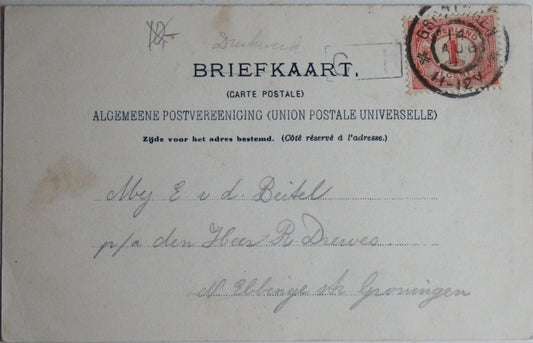 Drukwerk
BRIEFKAART.
(CARTE POSTALE)
ALGEMEENE POSTVEREENIGING (UNION POSTALE UNIVERSELLE)
Zijde voor het adres bestemd. (Côté réservé à l'adresse.)
Mej E v. d. Beitel
p/a den Heer R. Drewes.
N Ebbinge str Groningen
GRONINGEN
14 AUG
11-12V
NEDERLAND
1
CENT